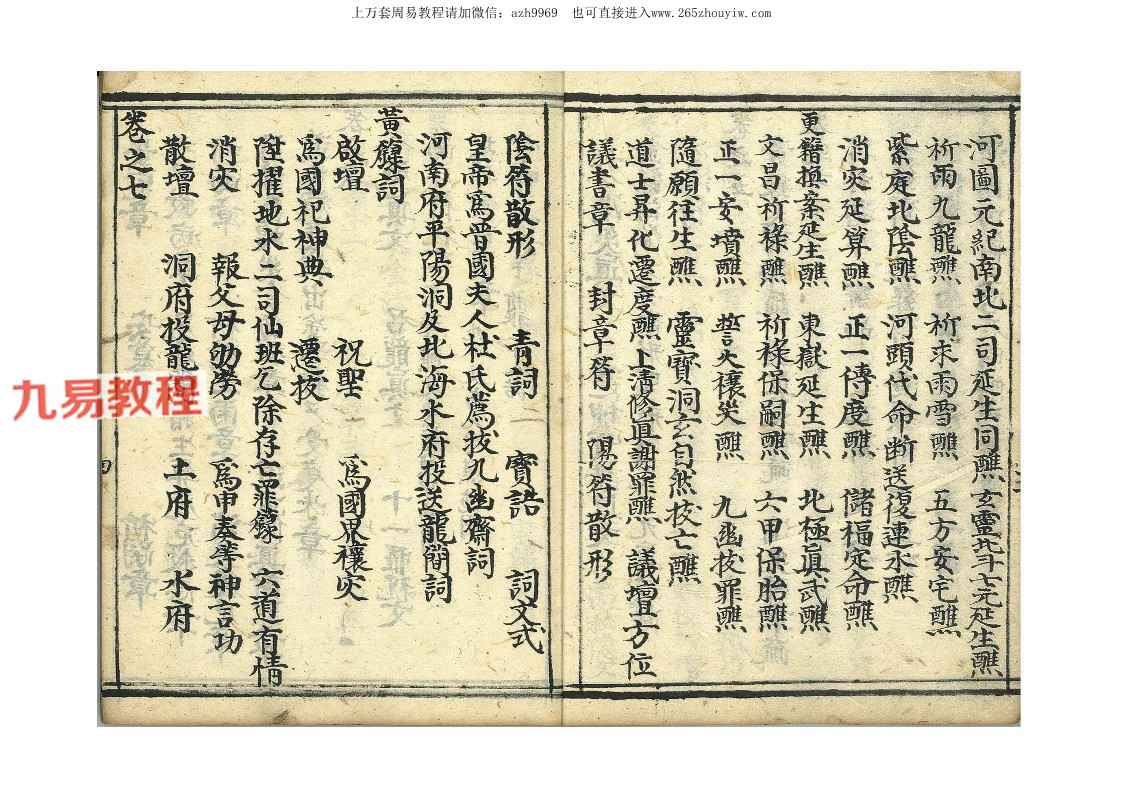 上万套周易教程请加微信：azh9969　也可直接进入www.265zhouyiw.com
河圖元紀南北二司延生同醮　玄靈北斗七元延生醮
祈雨九龍醮　祈求雨雪醮　五方安宅醮
紫庭北陰醮　河頭代命斷送復連水醮
消灾延算醮　正一傳度醮　儲福定命醮
更籍換案延生醮　東嶽延生醮　北極眞武醮
文昌祈祿醮　祈祿保嗣醮　六甲保胎醮
正一安墳醮　誓火禳灾醮　九幽拔罪醮
隨願往生醮　靈寶洞玄自然拔亡醮
道士昇化遷度醮　上清修眞謝罪醮　議壇方位
議書章　封章符　陽符散形
陰符散形　青詞　寶誥　詞文式
皇帝爲晋國夫人杜氏薦拔九幽齋詞
河南府平陽洞及北海水府投送龍簡詞
黃籙詞
啟壇　祝聖　爲國界禳灾
爲國祀神典　遷拔
陞擢地水二司仙班乞除存亡罪籙　六道有情
消灾　報父母劬勞　爲申奏等神言功
散壇　洞府投龍　土府　水府
卷之七
四
九易教程